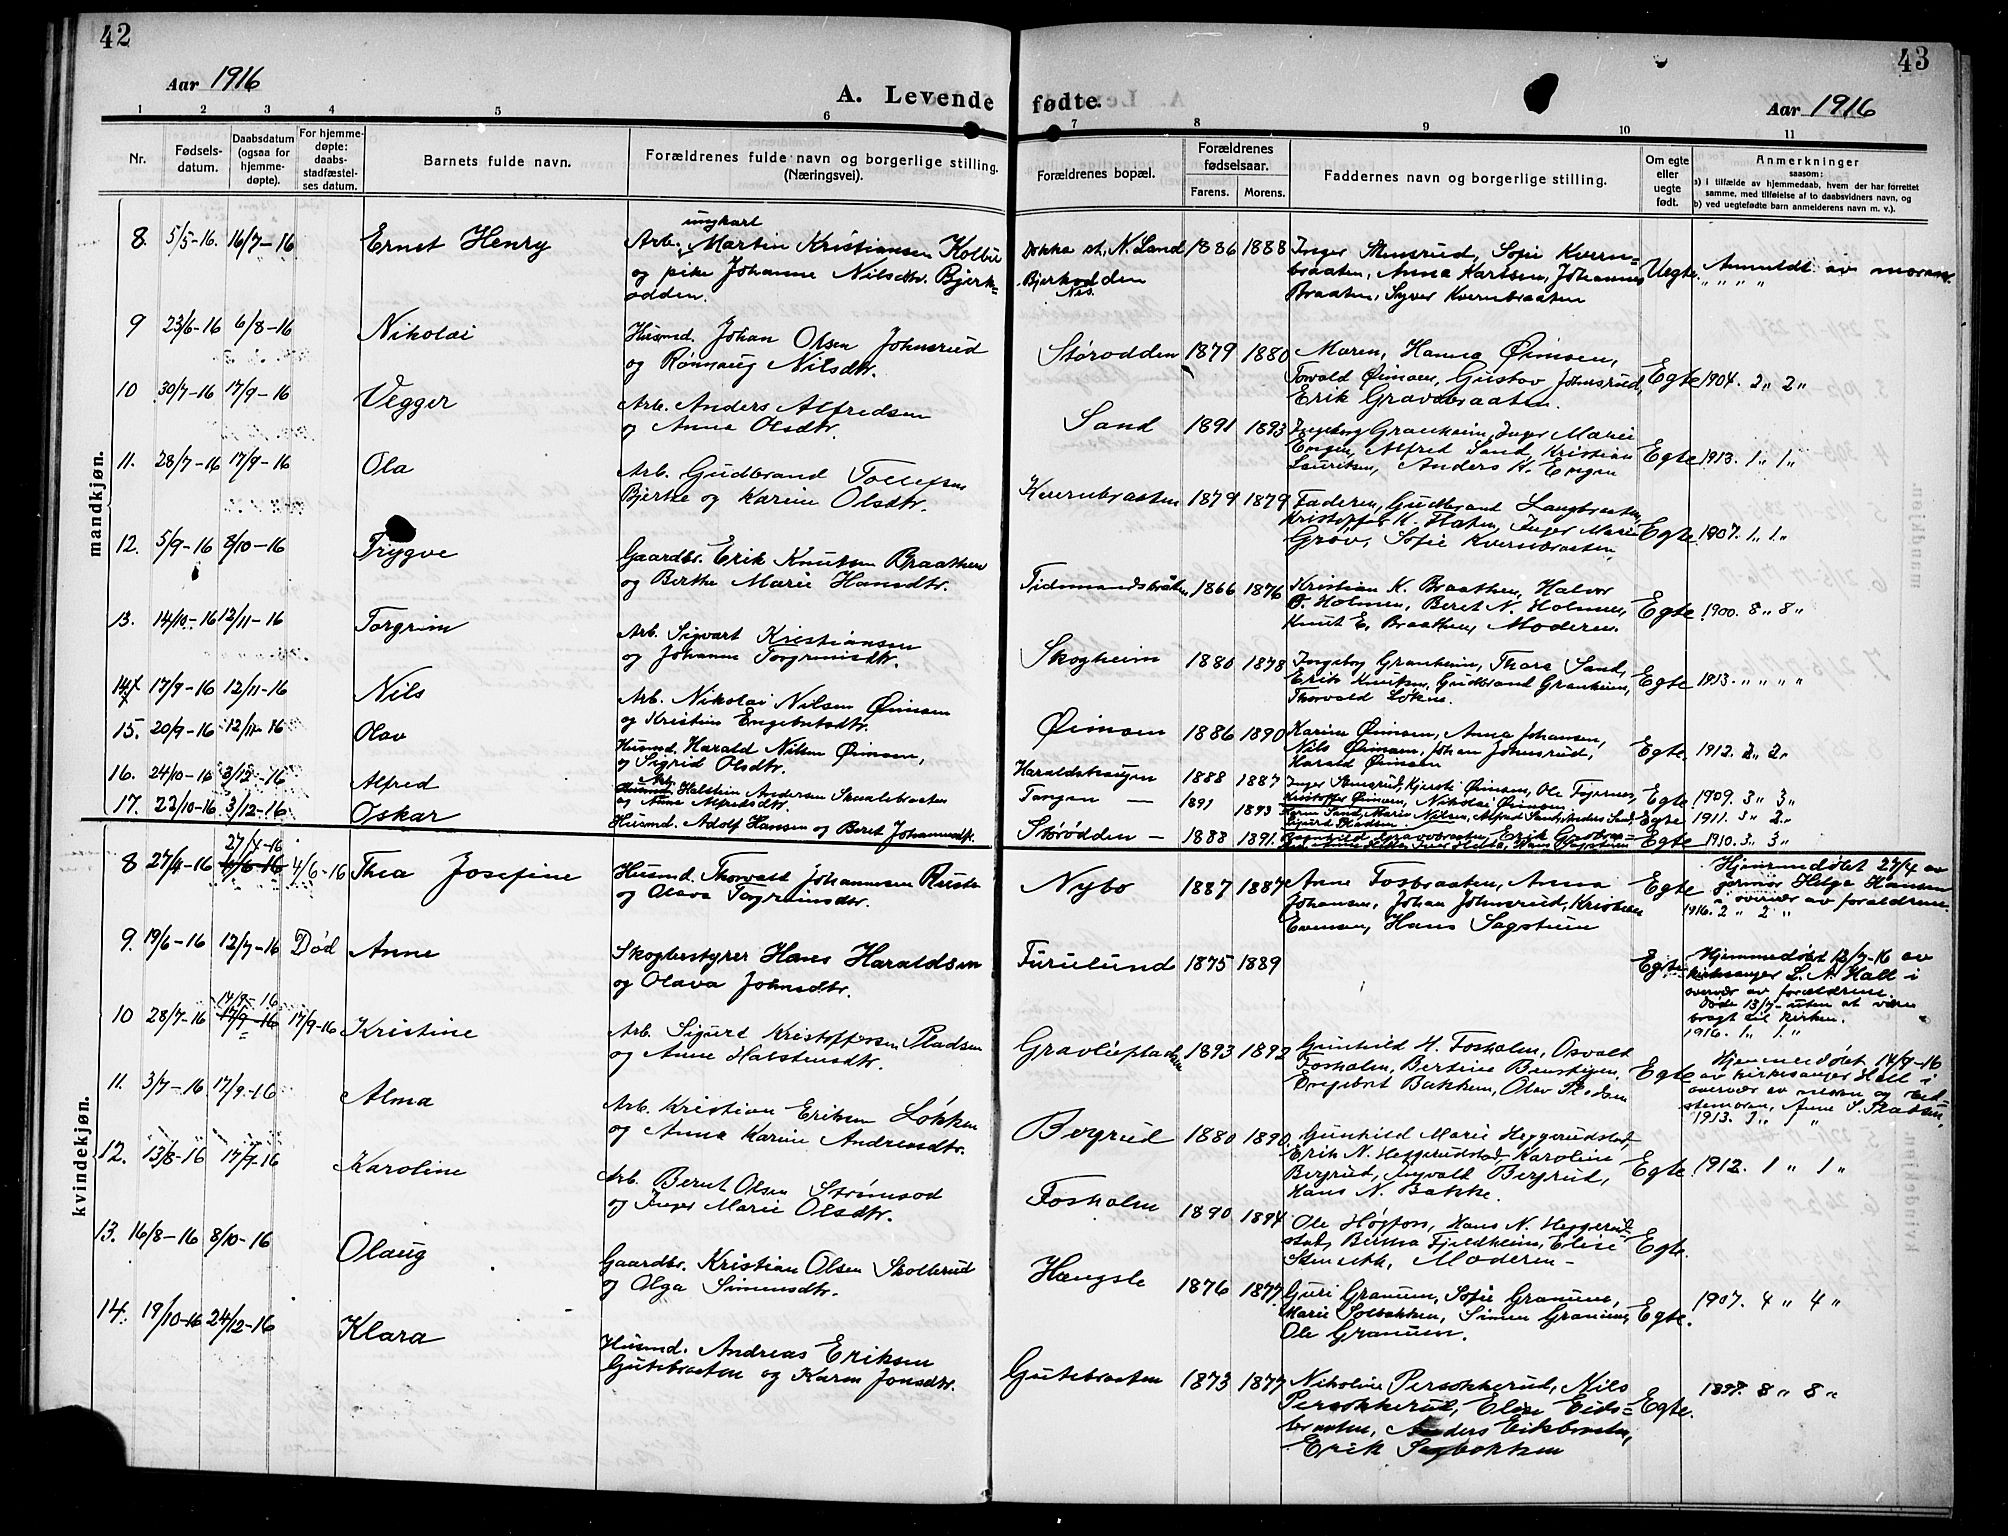 42
Aar 1916
A. Levende
1 2 3 4 5 6
Nr.
Fødsels-
datum.
Daabsdatum
(ogsaa for
hjemme-
døpte).
For hjemme-
døpte:
daabs-
stadfæstel-
ses datum.
Barnets fulde navn.
Forældrenes fulde navn og borgerlige stilling.
(Næringsvei).
mandkjøn.
8. 5/5-16. 16/7-16 Ernst Henry
ungkarl
Arb. Martin Kristiansen Kolbu
og pike Johanne Nilsdtr. Bjerk=
odden.
9 23/6-16 6/8-16 Nikolai
Husmd. Johan Olsen Johnsrud
og Rønnaug Nilsdtr.
10 30/7-16 17/9-16 Vegger
Arb. Anders Alfredsen
og Anna Olsdtr.
11. 28/7-16 17/9-16 Ola
Arb. Gudbrand Tollefsen
Bjerke og Karine Olsdtr.
12. 5/9-16 8/10-16 Trygve
Gaardbr. Erik Knutsen Braathen
og Berthe Marie Hansdtr.
13. 14/10-16 12/11-16 Torgrim
Arb. Sigvart Kristiansen
og Johanne Torgrimsdtr.
14 17/9-16 12/11-16 Nils
Arb. Nikolai Nilsen Øimoen
og Kristine Engebretsdtr.
15. 20/9-16 12/11-16 Olav
Husmd. Harald Nilsen Øimoen,
og Sigrid Olsdtr.
16. 24/10-16 3/12-16 Alfred
Arb.
Husmd. Halstein Andersen Skaalebraaten
og Anne Alfredsdtr.
17. 22/10-16 3/12-16 Oskar
Husmd. Adolf Hansen og Beret Johannesdtr.
kvindekjøn.
27/4-16
8 27/4-16 4/6-16 4/6-16 Thea Josefine
Husmd. Thorvald Johannesen Ruste
og Olava Torgrimsdtr.
9. 19/6-16 12/7-16 Død Anne
Skogbestyrer Hans Haraldsen
og Olava Johnsdtr.
14/9-16
10 28/7-16 17/9-16 17/9-16 Kristine
Arb. Sigurd Kristoffersen Pladsen
og Anne Halstensdtr.
11. 3/7-16 17/9-16 Alma
Arb. Kristian Eriksen Løkken
og Anna Karine Andreasdtr.
12. 13/8-16 17/9-16 Karoline
Arb. Bernt Olsen Strømsod
og Inger Marie Olsdtr.
13. 16/8-16 8/10-16 Olaug
Gaardbr. Kristian Olsen Skollerud
og Olga Simensdtr.
14. 19/10-16 24/12-16 Klara
Husmd. Andreas Eriksen
Gutebraaten og Karen Jonsdtr.
43
fødte.
Aar 1916
7 8 9 10 11
Forældrenes bopæl.
Forældrenes
fødselsaar.
Farens. Morens.
Faddernes navn og borgerlige stilling.
Om egte
eller
uegte
født.
Anmerkninger
saasom:
a) i tilfælde av hjemmedaab, hvem der har forrettet
samme, med tilføielse af to daabsvidners navn, og
b) ved uegtefødte barn anmelderens navn m. v.).
Dokka st., N. Land 1886 1888
Bjerkodden
Nes.
Inger Stensrud, Sofie Kvern=
braaten, Anna Karlsen, Johannes
Braaten, Syver Kvernbraaten
Uegte. Anmeldt av moren.
Størodden 1879 1880
Maren, Hanna Øimoen,
Torvald Øimoen, Gustav Johnsrud,
Erik Gravabraaten.
Egte 1904. 2 " 2 "
Sand 1891 1893
Ingeborg Granheim, Inger Marie
Engen, Alfred Sand, Kristian
Lauritsen, Anders K. Engen
Egte 1913. 1 " 1 "
Kvernbraaten 1879 1879
Faderen, Gudbrand Langbraaten,
Kristoffer K. Flaten, Inger Marie
Grøv, Sofie Kvernbraaten,
Egte. 1907. 1 " 1 "
Tidemandsbråten 1866 1876
Kristian K. Braathen, Halvor
O. Holmen, Beret N. Holmen,
Knut E. Braathen, Moderen.
Egte 1900. 8 " 8 "
Skogheim 1880 1878
Ingeborg Granheim, Thora Sand,
Erik Knutsen, Gudbrand Granheim,
Thorvald Løkens.
Egte 1913. " " " "
Øimoen 1886 1890
Karine Øimoen, Anna Johansen,
Nils Øimoen, Johan Johnsrud,
Harald Øimoen
Egte. 1912. 2 " 2 "
Haraldshaugen 1888 1887
Inger Stensrud, Kjersti Øimoen, Ole Fogernes,
Kristoffer Øimoen, Nikolai Øimoen.
Egte. 1909. 3 " 3 "
Tangen — 1891 1893
Karen Sand, Marie Nilsen, Alfred Sand, Anders Sand,
Sigurd Pladsen.
Egte 1911. 3 " 2 "
Størødden — 1888 1891.
Egte 1910. 3 " 3 "
Nybo 1887 1887
Anne Fosbraaten, Anna
Johansen, Johan Johnsrud, Kristian
Evensen, Hans Sagstuen
Egte
Hjemmedøbt 27/4 av
jormor Helga Hansen
i overvær av forældrene.
1916. 2 " 2 "
Furulund 1875 1889
Egte
Hjemmedøbt 12/7-16 av
kirksanger L. A. Hall i
overvær av forældrene.
Døde 13/7 uten at være
bragt til kirken.
1916. 1 " 1 "
Gravliepladsen 1893 1892
Gunhild H. Fosholm, Osvald
Fosholm, Bertine Benstigen,
Engebret Bakken, Olav Pladsen
Egte
Hjemmedøbt 14/9-16
av kirkesanger Hall i
overvær av moren og bed=
stemoren, Anne S. Pladsen,
1913. 3 " "
Bergrud 1880 1890
Gunhild Marie Heggerudstad,
Erik N. Heggerudstad, Karoline
Bergrud, Ingvald Bergrud,
Hans N. Bakke.
Egte. 1912. 1 " 1 "
Fosholm 1890 1894
Ole Høgfoss, Hans N. Heggerud=
stad, Berntha Fjeldheim, Elise
Stensekk, Moderen -
Egte.
Hængsle 1876 1877
Guri Granum, Sofie Granum,
Marie Solbakken, Simen Granum,
Ole Granum.
Egte. 1907. 4 " 4 "
Gutebraaten 1873 1877
Nikoline Persokkerud, Nils
Persokkerud, Elise Eids=
braaten, Anders Eidsbraaten,
Erik Sagbakken
Egte. 1898. 8 " 8 "